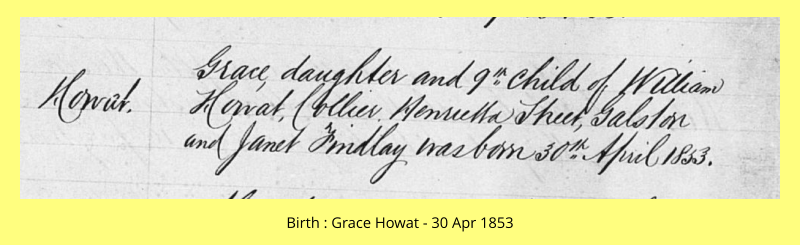 Howat.
Grace, daughter and 9th Child of William
Howat, Collier, Henrietta Street, Galston
and Janet Findlay was born 30th April 1853.
Birth : Grace Howat - 30 Apr 1853